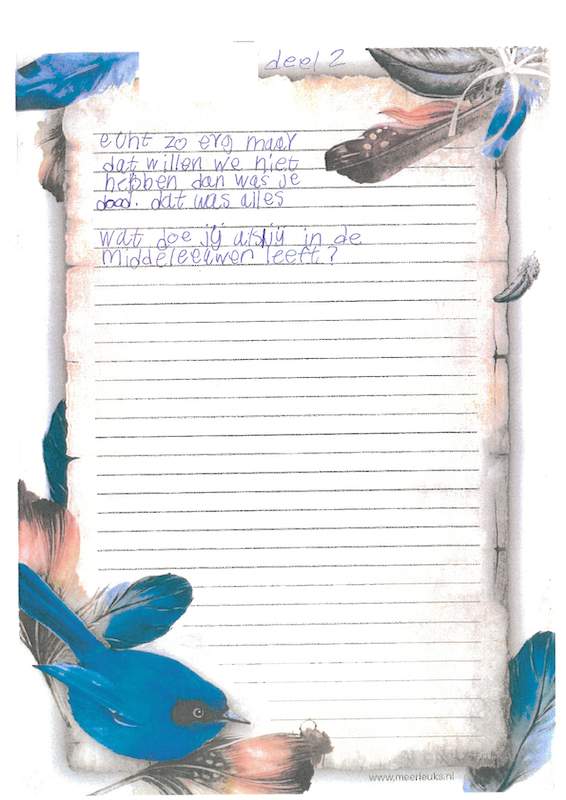 deel 2
echt zo erg maar
dat willen we niet
hebben dan was je
dood. dat was alles
wat doe jij als jij in de
middeleeuwen leeft?
www.meerleuks.nl